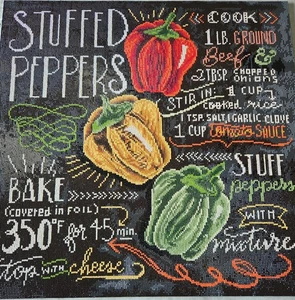 STUFFED
PEPPERS
COOK
1 LB GROUND
Beef &
2 TBSP CHOPPED
onions
STIR IN: 1 CUP
cooked rice
1 TSP SALT, 1 GARLIC CLOVE
1 CUP tomato SAUCE
STUFF
peppers
WITH
mixture
BAKE
(covered in FOIL)
350°F for 45 min.
top WITH cheese